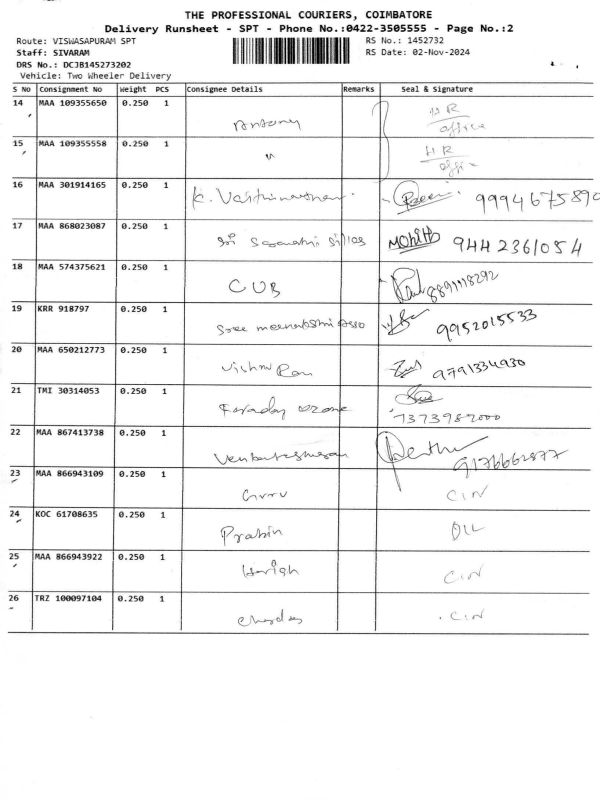 THE PROFESSIONAL COURIERS, COIMBATORE
Delivery Runsheet - SPT - Phone No.:0422-3505555 - Page No.:2
Route: VISWASAPURAM SPT RS No.: 1452732
Staff: SIVARAM RS Date: 02-Nov-2024
DRS No.: DCJB145273202
Vehicle: Two Wheeler Delivery
S No Consignment No Weight PCS Consignee Details Remarks Seal & Signature
14 MAA 109355650 0.250 1 Antony HR office
15 MAA 109355558 0.250 1 " HR
16 MAA 301914165 0.250 1 K. 9994675890
17 MAA 868023087 0.250 1 Sri MOHITH 9442361054
18 MAA 574375621 0.250 1 CUB 8891118292
19 KRR 918797 0.250 1 Sree meenakshi Asso 9952015533
20 MAA 650212773 0.250 1 Vishnu Ram 9791334930
21 TMI 30314053 0.250 1 Faraday Ozone 7373982000
22 MAA 867413738 0.250 1 Venkateshwaran 9176662877
23 MAA 866943109 0.250 1 Guru C/N
24 KOC 61708635 0.250 1 Prabin D/L
25 MAA 866943922 0.250 1 Harish C/N
26 TRZ 100097104 0.250 1 C/N